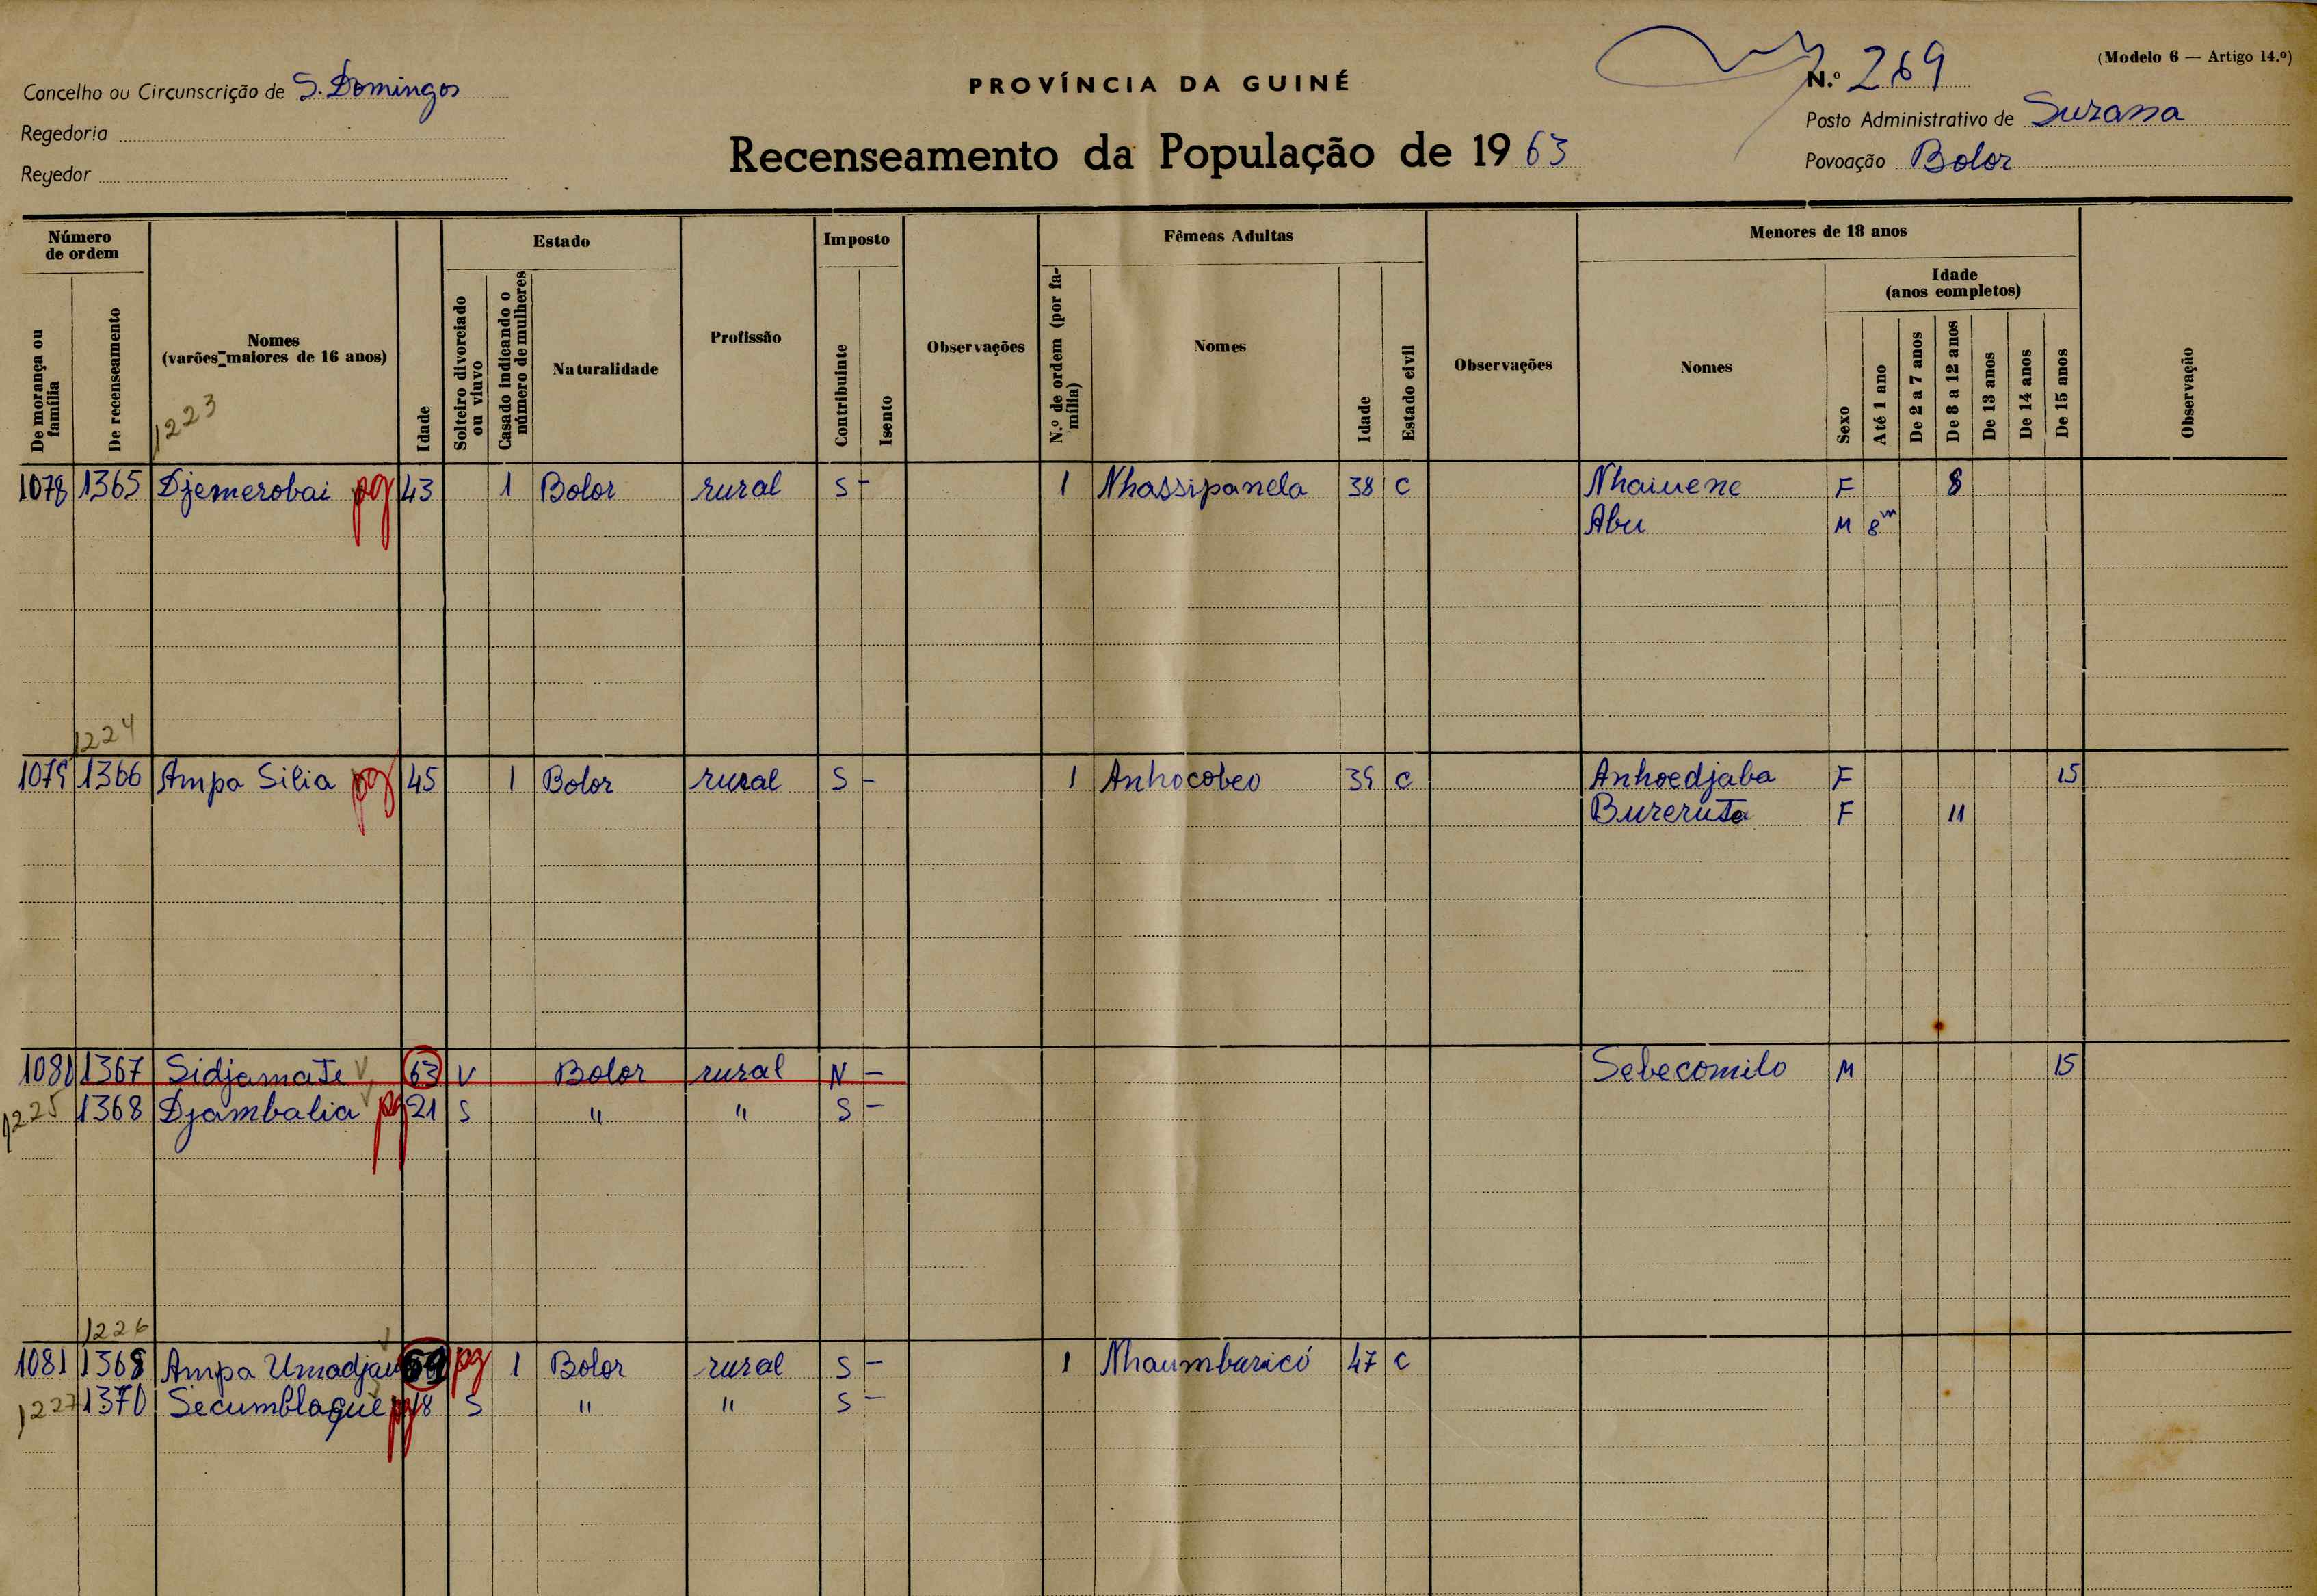 (Modelo 6 — Artigo 14.º)
PROVÍNCIA DA GUINÉ
N.º 269
Concelho ou Circunscrição de S. Domingos
Posto Administrativo de Suzana
Regedoria
Recenseamento da População de 1963
Povoação Bolor
Regedor
Número de ordem
De morança ou família
De recenseamento
Nomes
(varões maiores de 16 anos)
1223
Idade
Estado
Solteiro divorciado ou viuvo
Casado indicando o número de mulheres
Naturalidade
Profissão
Imposto
Contribuinte
Isento
Observações
Fêmeas Adultas
N.º de ordem (por família)
Nomes
Idade
Estado civil
Observações
Menores de 18 anos
Nomes
Idade
(anos completos)
Sexo
Até 1 ano
De 2 a 7 anos
De 8 a 12 anos
De 13 anos
De 14 anos
De 15 anos
Observação
1078 1365 Djemerobai pg 43 1 Bolor rural S - 1 Nhassipanela 38 C Nhaiuene F 8
Abu M 8m
1224
1079 1366 Ampa Silia pg 45 1 Bolor rural S - 1 Anhocobeo 39 C Anhoedjaba F 15
Bureruta F 11
1080 1367 Sidjamate V 63 V Bolor rural N - Sebecomilo M 15
1225 1368 Djambalia pg 21 S " " S -
1226
1081 1369 Ampa Umadjau 59 pg 1 Bolor rural S - 1 Nhaumbaricó 47 C
1227 1370 Secumblaque pg 18 S " " S -